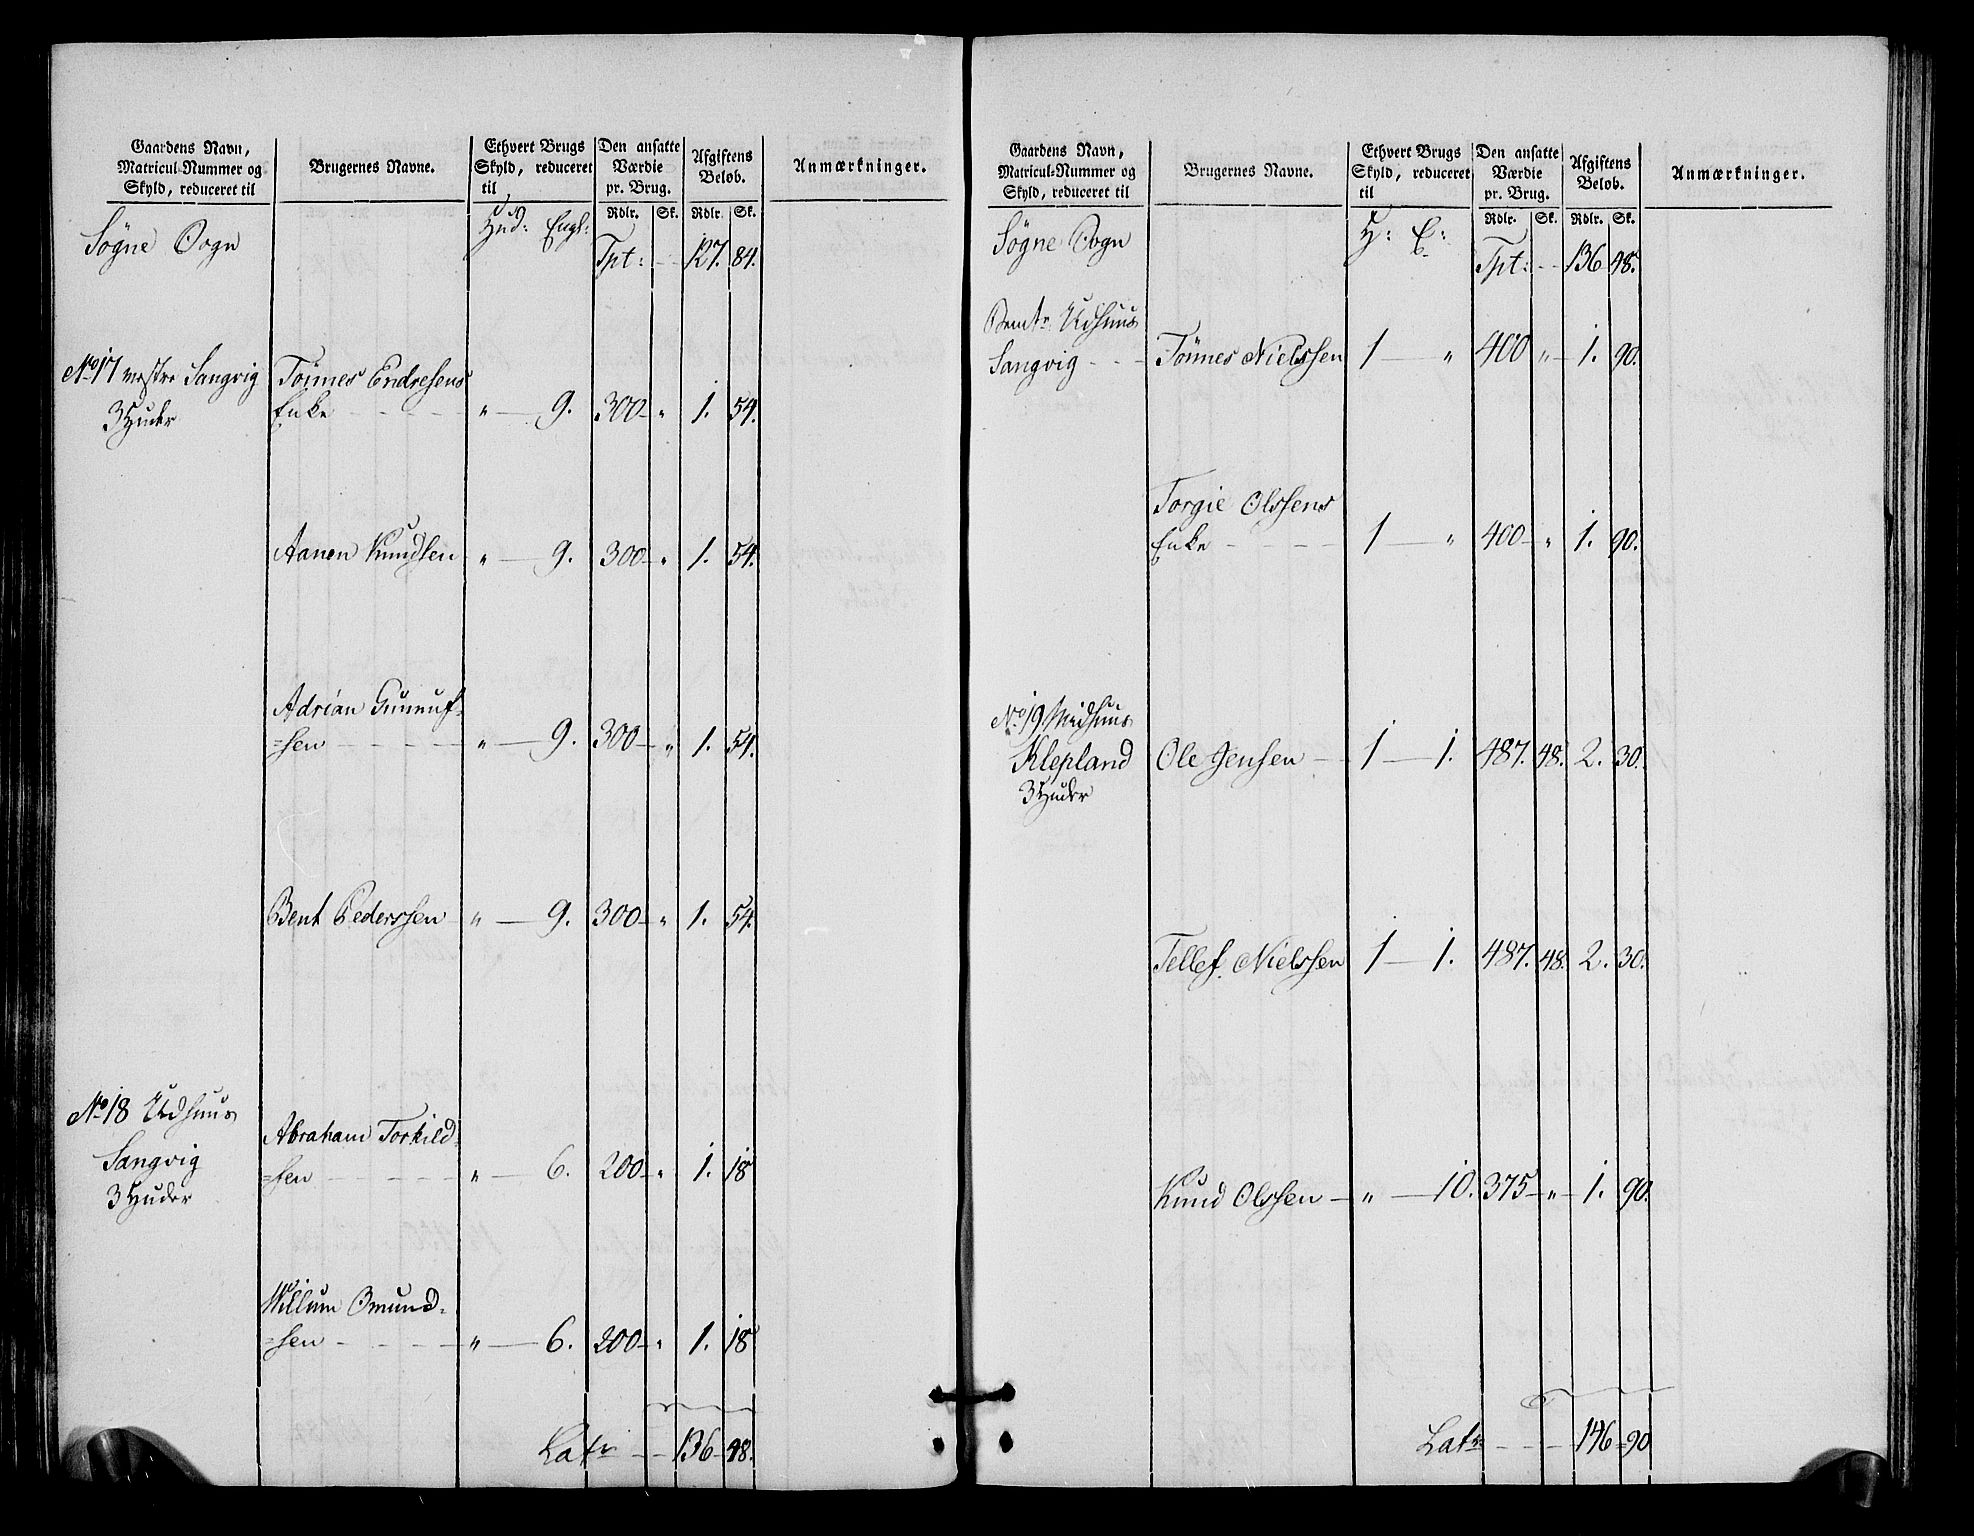 Gaardens Navn, Matricul-Nummer og Skyld, reduceret til | Brugernes Navne. | Ethvert Brugs Skyld, reduceret til | Den ansatte Værdie pr. Brug. | Afgiftens Beløb. | Anmærkninger.
Rdlr. Sk. Rdlr. Sk.
Søgne Sogn Hud: Engl: Tpt: 127. 84.
No 17 vestre Langvig Tönnes Endresens
3 Huder Enke " 9. 300 " 1. 54.
Aanen Knudsen " 9. 300 " 1. 54.
Adrian Gunnuf=
=sen " 9. 300 " 1. 54.
Bent Pederssen " 9. 300 " 1. 54.
No 18 Udhuus
Langvig Abraham Torkild=
3 Huder =sen " 6. 200 " 1. 18
Willum Omund=
=sen " 6. 200 " 1. 18
Latr 136 48.
Gaardens Navn, Matricul-Nummer og Skyld, reduceret til | Brugernes Navne. | Ethvert Brugs Skyld, reduceret til | Den ansatte Værdie pr. Brug. | Afgiftens Beløb. | Anmærkninger.
Rdlr. Sk. Rdlr. Sk.
Søgne Sogn H: E: Tpt: 136 48.
Bemte Udhuus
Langvig Tönnes Nielssen 1 " 400 " 1. 90.
Torgie Olssens
Enke 1 " 400 " 1. 90.
No 19 Midhuus
Klepland Ole Jensen 1 1. 487. 48. 2. 30.
3 Huder
Tellef Nielssen 1 1. 487. 48. 2. 30.
Knud Olssen " 10. 375 " 1. 90.
Latr 146 90